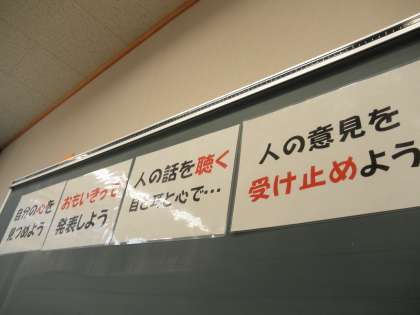 自分の心を
見つめよう
おもいきって
発表しよう
人の話を聴く
目と耳と心で…
人の意見を
受け止めよう